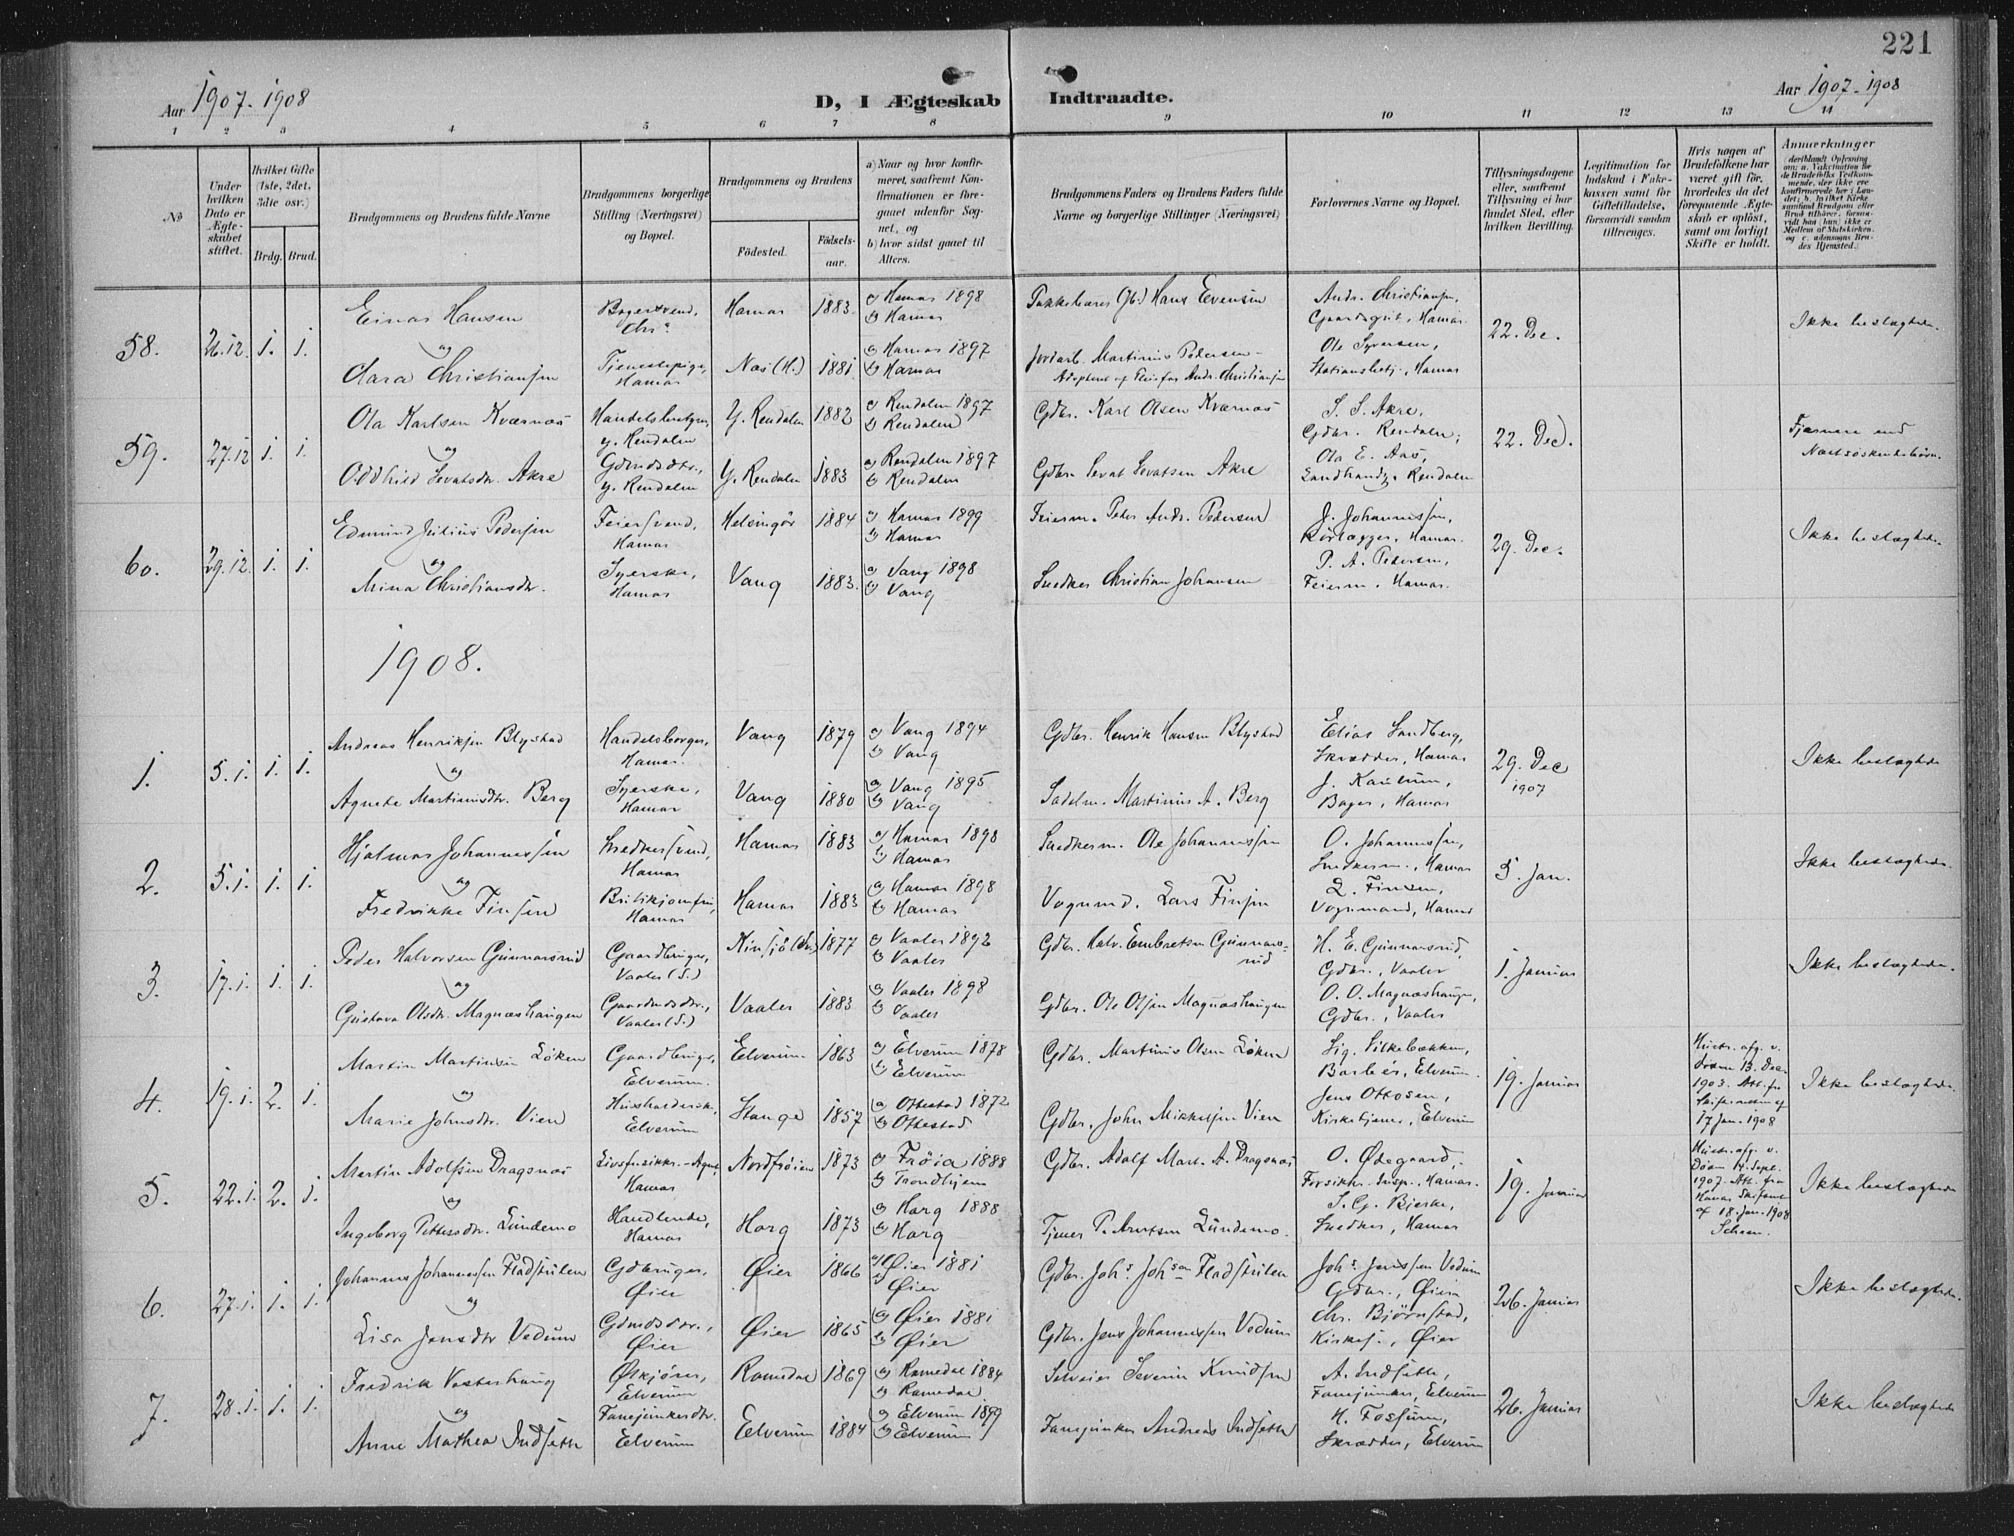 221
Aar 1907-1908
D, I Ægteskab Indtraadte.
Aar 1907-1908
1 2 3 4 5 6 7 8 9 10 11 12 13 14
No
Under hvilken Dato er Ægteskabet stiftet.
Hvilket Gifte (1ste, 2det, 3die osv.)
Brdg. Brud.
Brudgommens og Brudens fulde Navne
Brudgommens borgerlige Stilling (Næringsvei) og Bopæl.
Brudgommens og Brudens
Födested. Födselsaar.
a) Naar og hvor konfirmeret, saafremt Konfirmationen er foregaaet udenfor Sognet, og
b) hvor sidst gaaet til Alters.
Brudgommens Faders og Brudens Faders fulde Navne og borgerlige Stillinger (Næringsvei)
Forlovernes Navne og Bopæl.
Tillysningsdagene eller, saafremt Tillysning ei har fundet Sted, efter hvilken Bevilling.
Legitimation for Indskud i Enkekassen samt for Giftetilladelse, forsaavidt saadan tiltrænges.
Hvis nogen af Brudefolkene har været gift før, hvorledes da det foregaaende Ægteskab er opløst, samt om lovligt Skifte er holdt.
Anmerkninger
58. 26.12. 1. 1.
Einar Hansen Bagersvend, Hamar 1883 a) Hamar 1898 b) Hamar Hans Evensen Andr. Christiansen, Gaardsgut, Hamar 22. Dec. Ikke beslægtede.
og
Clara Christiansen Tjenestepige, Hamar Næs (H.) 1881 a) Hamar 1897 b) Hamar Jordarb. Martinus Pedersen Ole Syversen, Stationsbetj., Hamar
Adopteret af Pleiefar Andr. Christiansen
59. 27.12 1. 1.
Ola Karlsen Kværnæs Handelsbetjent, Y. Rendalen Y. Rendalen 1882 a) Rendalen 1897 b) Rendalen Gdbr. Karl Olsen Kværnæs S. S. Akre, Gdbr. Rendalen; 22. Dec. Fjernere end Næstsøskendebørn.
og
Oddhild Sevatsdr. Akre Gdmdsdtr., Y. Rendalen Y. Rendalen 1883 a) Rendalen 1897 b) Rendalen Gdbr. Sevat Sevatsen Akre Ola E. Aas, Landhandl. Rendalen
60. 29.12. 1. 1.
Edmund Julius Pedersen Feiersvend, Hamar Helsingør 1884 a) Hamar 1899 b) Hamar Feierm. Peter Andr. Pedersen J. Johannessen, Rørlægger, Hamar. 29. Dec. Ikke beslægtede.
og
Mina Christiansdr. Syerske, Hamar Vang 1883. a) Vang 1898 b) Vang Snedker Christian Johansen P. A. Pedersen, Feierm., Hamar.
1908.
1. 5.1. 1. 1.
Andreas Henriksen Blystad Handelsborger, Hamar. Vang 1879 a) Vang 1894 b) Vang Gdbr. Henrik Hansen Blystad Elias Sandberg, Skrædder, Hamar 29. Dec 1907 Ikke beslægtede
og
Agnete Martinusdr. Berg Syerske, Hamar Vang 1880 a) Vang 1895 b) Vang Sadelm. Martinius A. Berg J. Karlsen, Bager, Hamar
2. 5.1. 1. 1.
Hjalmar Johannessen Snedkersvend, Hamar Hamar 1883 a) Hamar 1898 b) Hamar Snedkerm. Ole Johannessen O. Johannessen, Snedkerm., Hamar 5. Jan. Ikke beslægtede
og
Fredrikke Finsen Butikjomfru, Hamar Hamar 1883 a) Hamar 1898 b) Hamar Vognmd. Lars Finsen L. Finsen, Vognmand, Hamar
3. 17.1. 1. 1.
Peder Halvorsen Gunnarsrud Gaardbruger, Vaaler (S.) 1877 a) Vaaler 1892 b) Vaaler Gdbr. Halv. Embretsen Gunnarsrud H. E. Gunnarsrud, Gdbr., Vaaler 1. Januar Ikke beslægtede.
og
Gustava Olsdr. Magnæshaugen Gaardmdsdr., Vaaler (S.) Vaaler 1883 a) Vaaler 1898 b) Vaaler Gdbr. Ole Olsen Magnæshaugen O. O. Magnæshaugen, Gdbr., Vaaler
4. 19.1. 2. 1.
Martin Martinsen Løken Gaardbruger, Elverum. Elverum 1863 a) Elverum 1878 b) Elverum Gdbr. Martinus Olsen Løken Sig. Silkebækken, Barber, Elverum. 19. Januar Hustr. afg. v. Døden 13. Dec 1903. Att. fra Skifteretten af 17 Jan. 1908 Ikke beslægtede
og
Marie Johnsdr. Vien Husholderske, Elverum Stange 1857 a) Ottestad 1872 b) Ottestad Gdbr. John Mikkelsen Vien Jens Ottosen, Kirketjener, Elverum
5. 22.1. 2. 1.
Martin Adolfsen Dragsnæs Livsforsikr.-Agent Hamar Nordfrøien 1873 a) Frøia 1888 b) Trondhjem Gdbr. Adolf Mart. A. Dragsnæs O. Ødegaard, Forsikr. Insp., Hamar. 19. Januar Hustr. afg. v. Døden 14. Sept. 1907. Att. fra Hamar Skifteret af 18. Jan. 1908 Ikke beslægtede
og
Ingeborg Pettersdr. Lundemo Handlende, Hamar Horg 1873 a) Horg 1888 b) Horg P. Arntsen Lundemo. S. G. Bjerke, Snedker, Hamar
6. 27.1. 1. 1.
Johannes Johannessen Fladstulen Gdbruger, Øier Øier 1866 a) Øier 1881 b) Øier Gdbr. Johs. Johsen Fladstulen Johs. Jenssen Vedum Gdbr., Øier 26. Januar Ikke beslægtede.
og
Lisa Jensdtr Vedum Gdmdsdtr., Øier Øier 1865 a) Øier 1881 b) Øier Gdbr. Jens Johannessen Vedum Chr. Bjørnstad, Kirkes., Øier
7. 28.1. 1. 1.
Fredrik Vesterhaug Elverum Romedal 1869 a) Romedal 1884 b) Romedal Selveier Severin Knudsen A. Indseth, Fanejunker, Elverum 26. Januar Ikke beslægtede
og
Anne Mathea Indseth Fanejunkerdtr. Elverum Elverum 1884 a) Elverum 1899 b) Elverum Fanejunker Andreas Indseth H. Fossum, Skrædder, Elverum